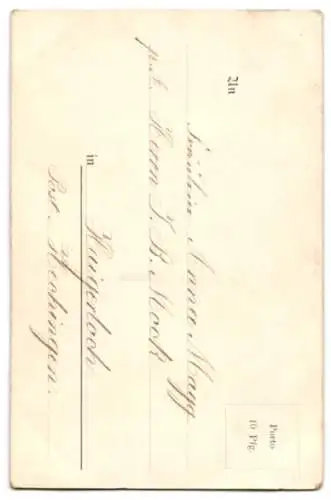 An
Fräulein Anna Magg
p. A. Herrn J. B. Mock
in
Haigerloch
Post. Hechingen.
Porto
10 Pfg.